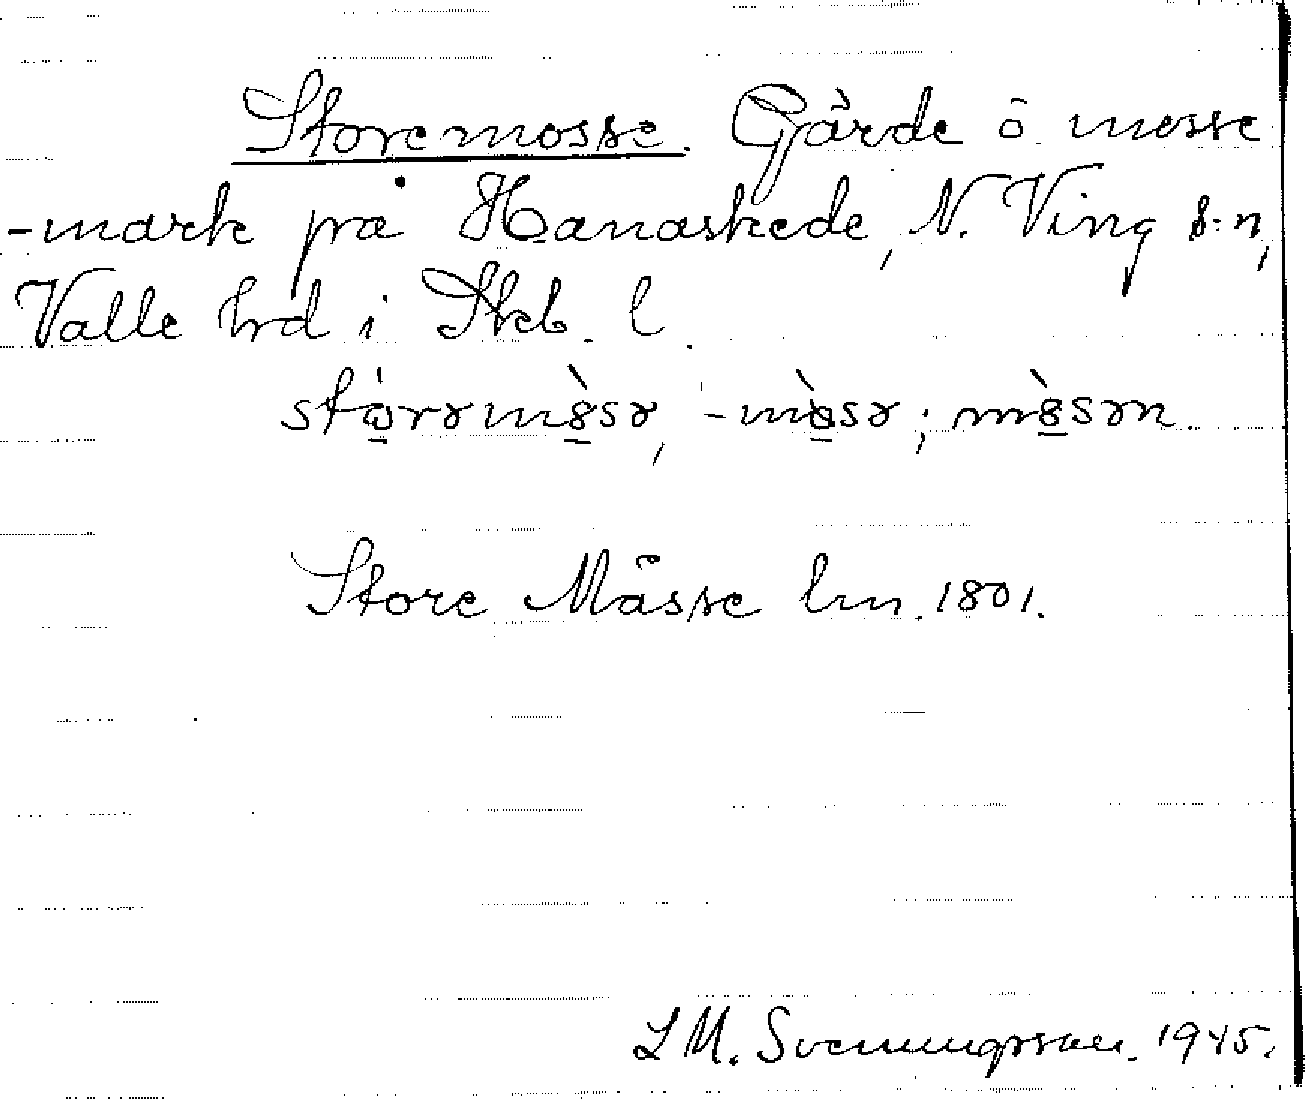 Storemosse. Gärde o mosse
-mark på Hanaskede, N. Ving s:n,
Valle hrd i Skb. l.
stòrəmɵ̀sə, -mòsə; mɵ̀sən.
Store Måsse lm. 1801.
L M. Svenungsson. 1945.